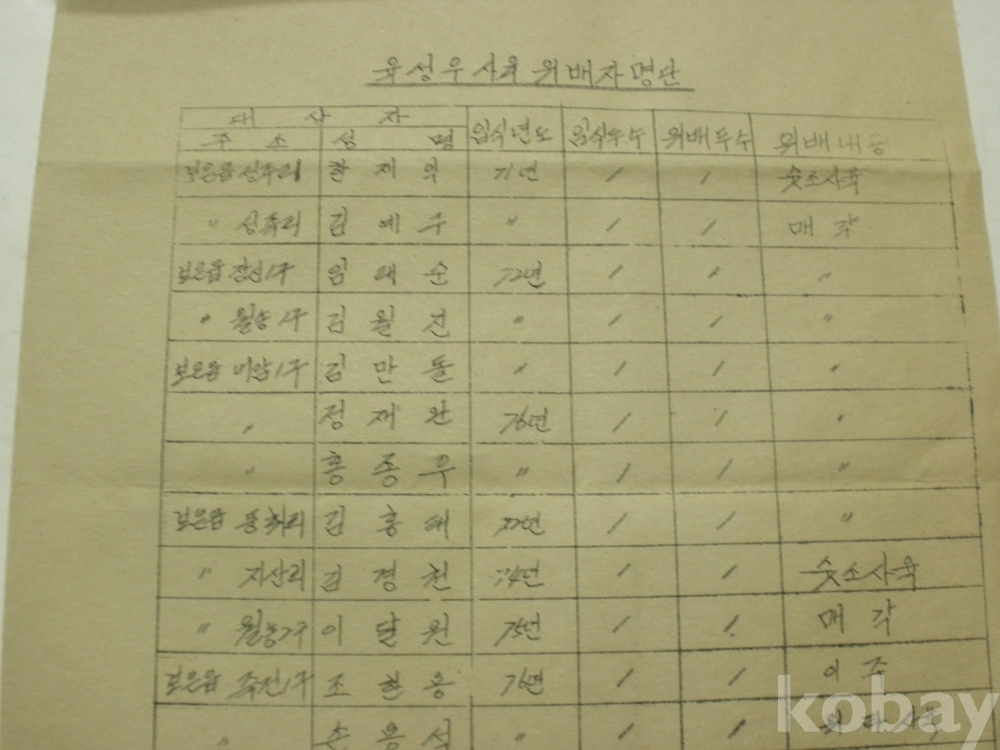 육성우사육 위배자명단
대 상 자
주 소 성 명 입식년도 입식두수 위배두수 위배내용
보은읍 성주리 한재억 71년 1 1 숫소사육
〃 성주리 김예구 〃 1 1 매각
보은읍 장신1구 임대순 72년 1 〃 〃
〃 월송1구 김월선 〃 1 1 〃
보은읍 어암1구 김만돌 〃 1 1 〃
〃 정재완 76년 1 1 〃
〃 홍종우 〃 1 1 〃
보은읍 풍취리 김홍태 72년 1 1 〃
〃 지산리 김경천 74년 1 1 숫소사육
〃 월송2구 이달원 75년 1 1 매각
보은읍 죽전1구 조한웅 76년 1 1
〃 손응석 〃 1 1
kobay